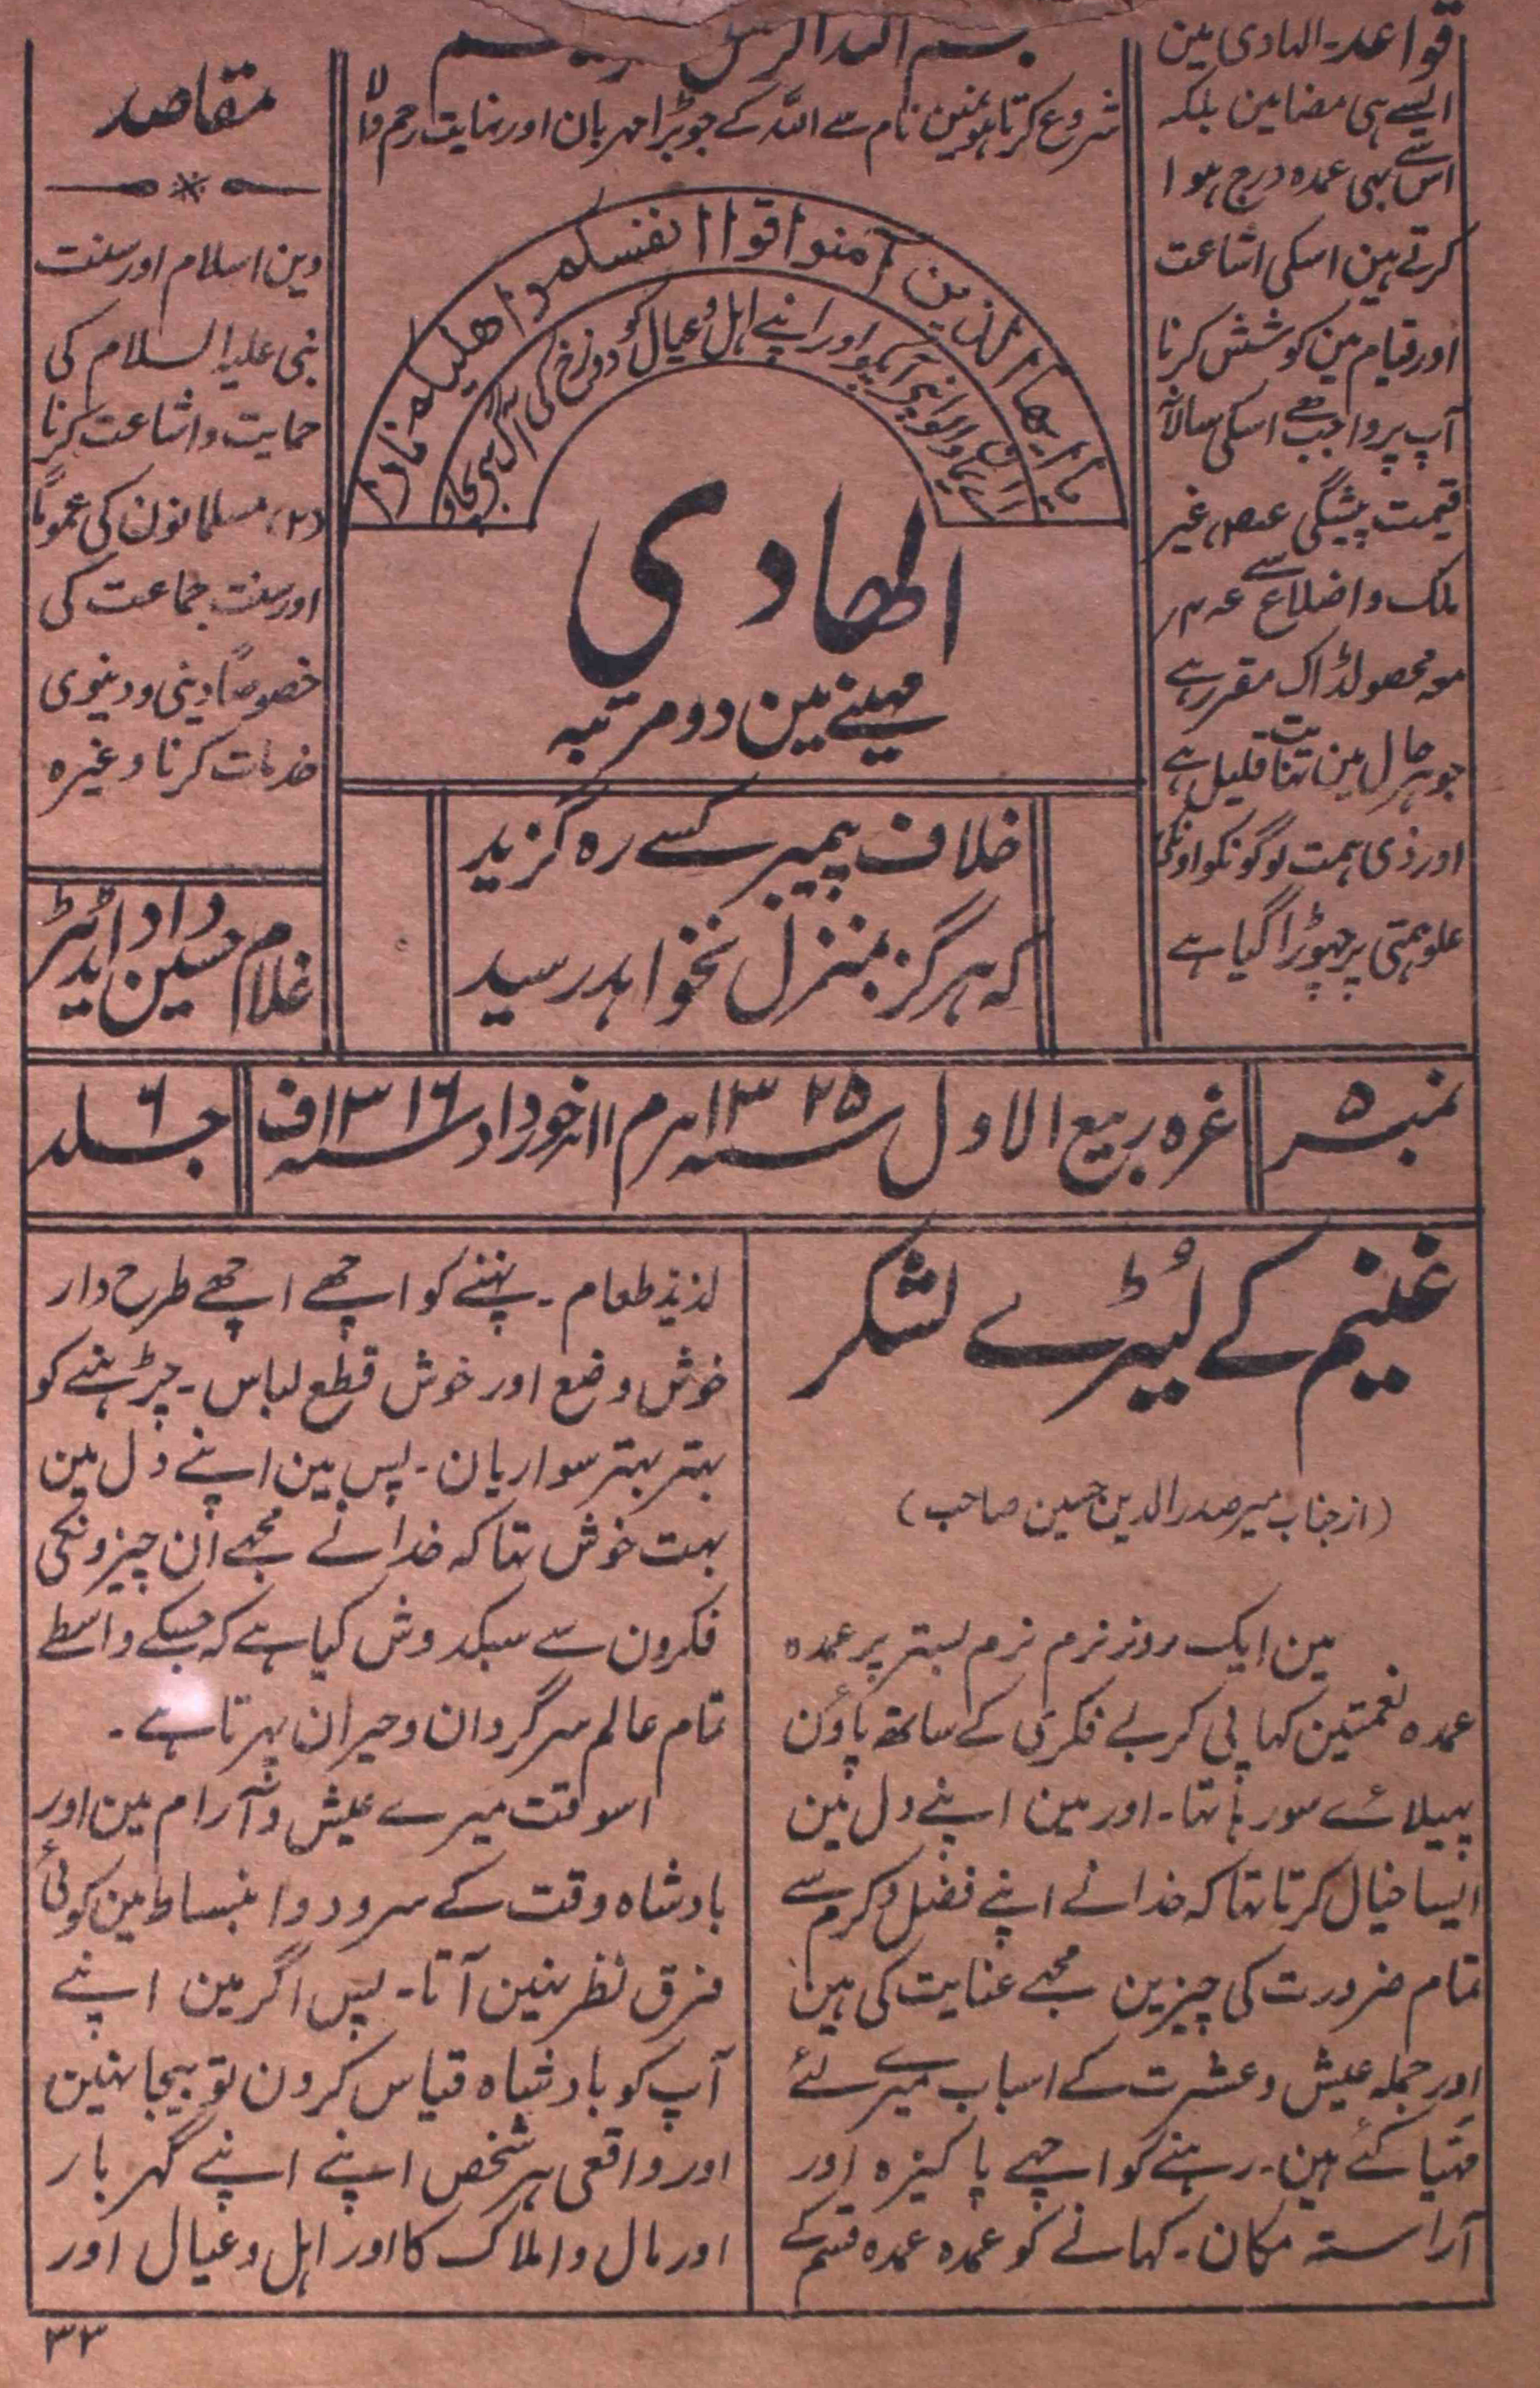 قواعد۔ الہادی مین
ایسے ہی مضامین بلکہ
اس سے بہی عمدہ درج ہوا
کرتے ہین اسکی اشاعت
اور قیام مین کوشش کرنا
آپ پر واجب ہے اسکی سالانہ
قیمت پیشگی غیر
ملک و اضلاع سے
معہ محصولڈاک مقرر ہے
جو ہر حال مین نہایت قلیل ہے
اور ذی ہمت لوگونکو اونکی
علو ہمتی پر چہوڑا گیا ہے
شروع کرتا ہون مین نام سے اللہ کے جو بڑا مہربان اور نہایت رحم والا
یا ایھا الذین آمنوا قوا انفسکم واھلیکم نارا
اے ایمان والو اپنی آپکو اور اپنے اہل و عیال کو دوزخ کی آگ سے بچاو
الھادی
مہینے مین دو مرتبہ
خلاف پیمبر کسے رہ گزید
کہ ہرگز بمنزل نخواہد رسید
مقاصد
دین اسلام اور سنت
نبی علیہ السلام کی
حمایت و اشاعت کرنا
(۲) مسلمانون کی عموماً
اور سنت جماعت کی
خصوصاً دینی و دینوی
خدمات کرنا وغیرہ
غلام حسین داد اڈیٹر
نمبر ۵
غرہ ربیع الاول سنہ ۱۳۲۵ ہجری م ۱۱ خورداد سنہ ۱۳۱۶ ف
جلد ۶
غنیم کے لُٹیرے لشکر
(از جناب میر صدر الدین حسین صاحب)
مین ایک روز نرم نرم بستر پر عمدہ
عمدہ نعمتین کہا پی کر بے فکری کے ساتھ پاؤن
پہیلائے سو رہا تہا۔ اور مین اپنے دل مین
ایسا خیال کرتا تہا کہ خدا نے اپنے فضل و کرم سے
تمام ضرورت کی چیزین مجہے عنایت کی ہین
اور جملہ عیش و عشرت کے اسباب میرے لئے
مہیا کئے ہین۔ رہنے کو اچہے پاکیزہ اور
آراستہ مکان۔ کہانے کو عمدہ عمدہ قسم کے
لذیذ طعام۔ پہننے کو اچھے اچھے طرح دار
خوش وضع اور خوش قطع لباس۔ چڑہنے کو
بہتر بہتر سواریان۔ پس مین اپنے دل مین
بہت خوش تہا کہ خدا نے مجہے ان چیزونکی
فکرون سے سبکدوش کیا ہے کہ جسکے واسطے
تمام عالم سرگردان و حیران پہرتا ہے۔
اسوقت میرے عیش و آرام مین اور
بادشاہ وقت کے سرور و انبساط مین کوئی
فرق نظر نہین آتا۔ پس اگر مین اپنے
آپ کو بادشاہ قیاس کرون تو بیجا نہین
اور واقعی ہر شخص اپنے اپنے گہر بار
اور مال و املاک کا اور اہل و عیال اور
۳۳